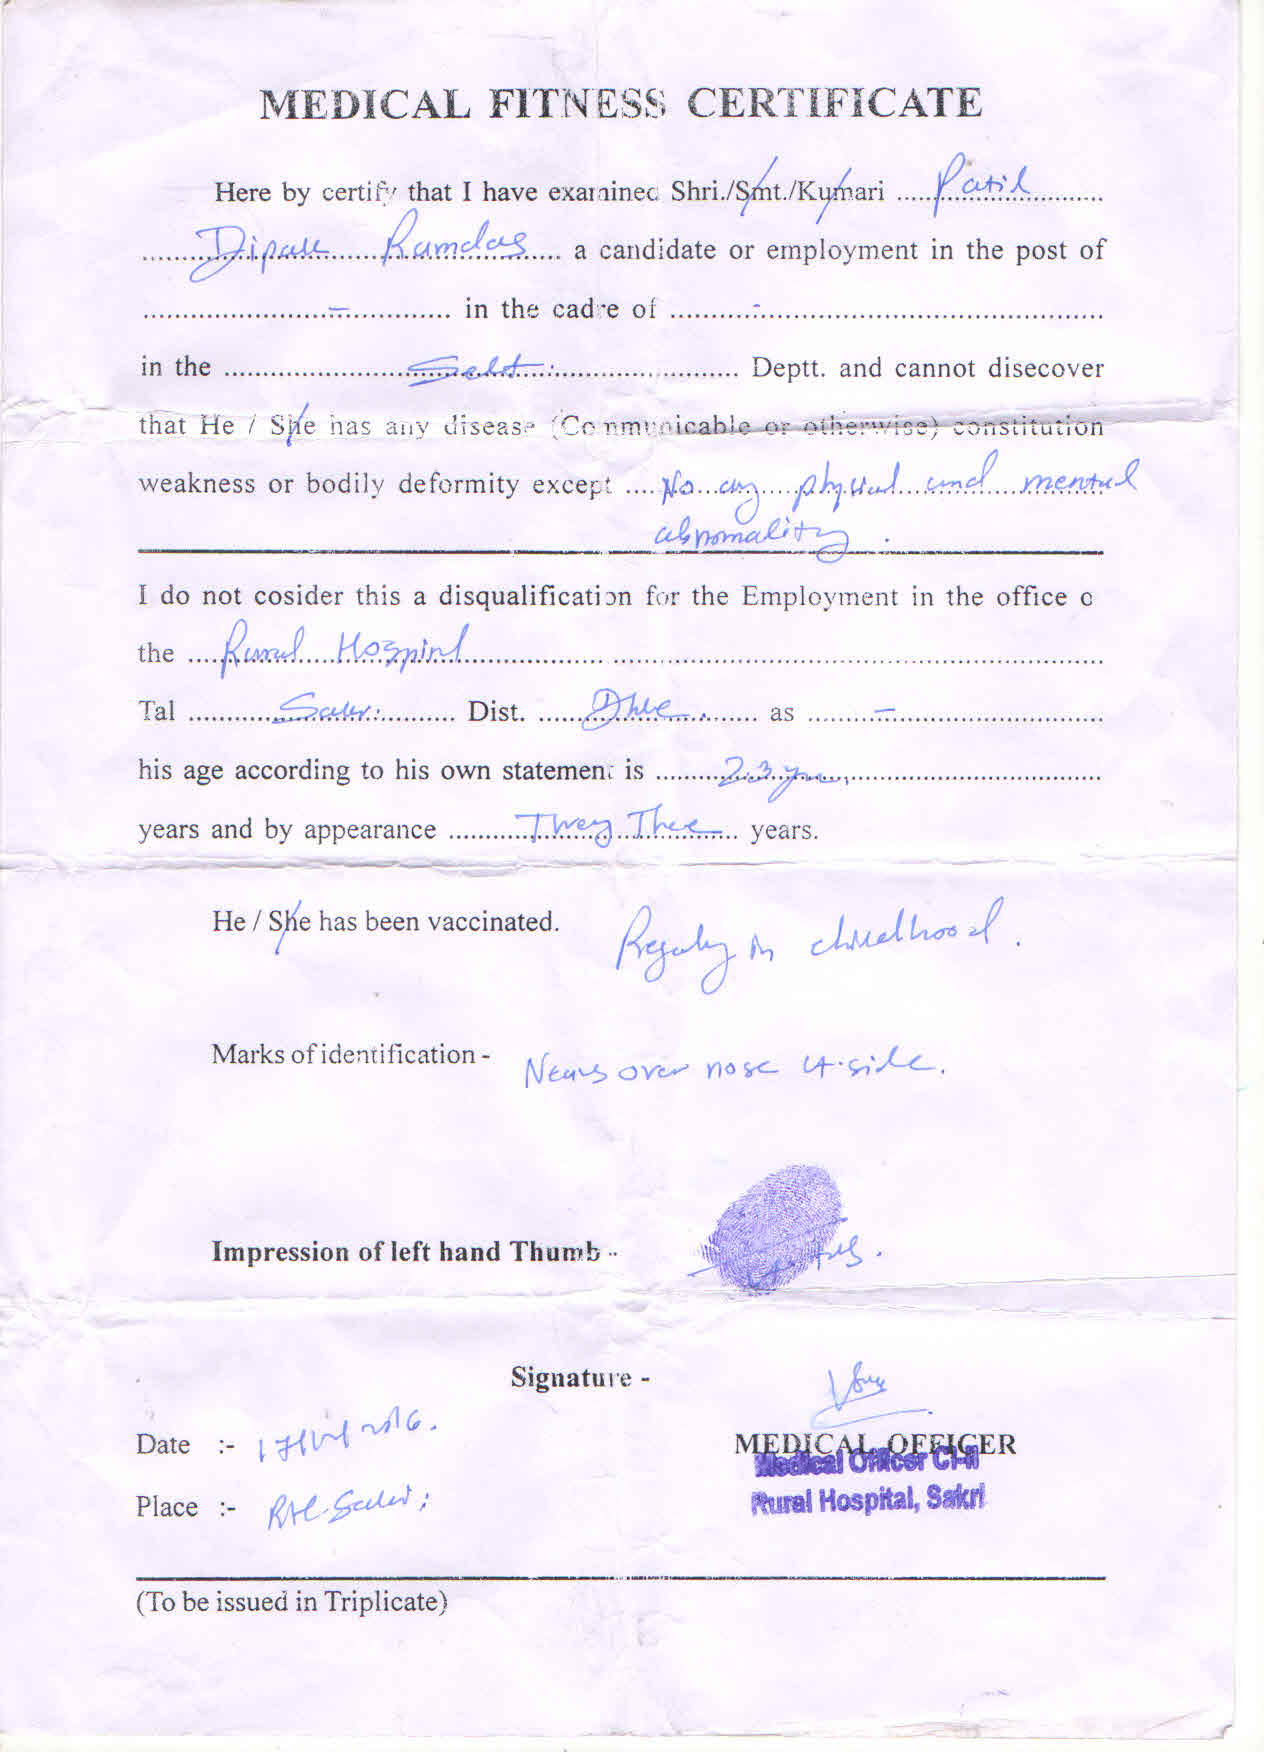 MEDICAL FITNESS CERTIFICATE
Here by certify that I have examined Shri./Smt./Kumari .......... Patil ..........
.......... Ramdas .......... a candidate or employment in the post of
.......... – .......... in the cadre of .......... - ..........
in the .......... Deptt. and cannot disecover
that He / She has any disease (Communicable or otherwise) constitution
weakness or bodily deformity except .... No any physical and mental
abnormality .
I do not cosider this a disqualification for the Employment in the office o
the .... Rural Hospital ..........
Tal .......... Dist. .......... as .......... – ..........
his age according to his own statement is .......... 23 ..........
years and by appearance .......... years.
He / She has been vaccinated. in childhood .
Marks of identification - over nose side.
Impression of left hand Thumb -
Signature -
Date :- 2016.
MEDICAL OFFICER
Medical Officer Cl-II
Place :-
Rural Hospital, Sakri
(To be issued in Triplicate)